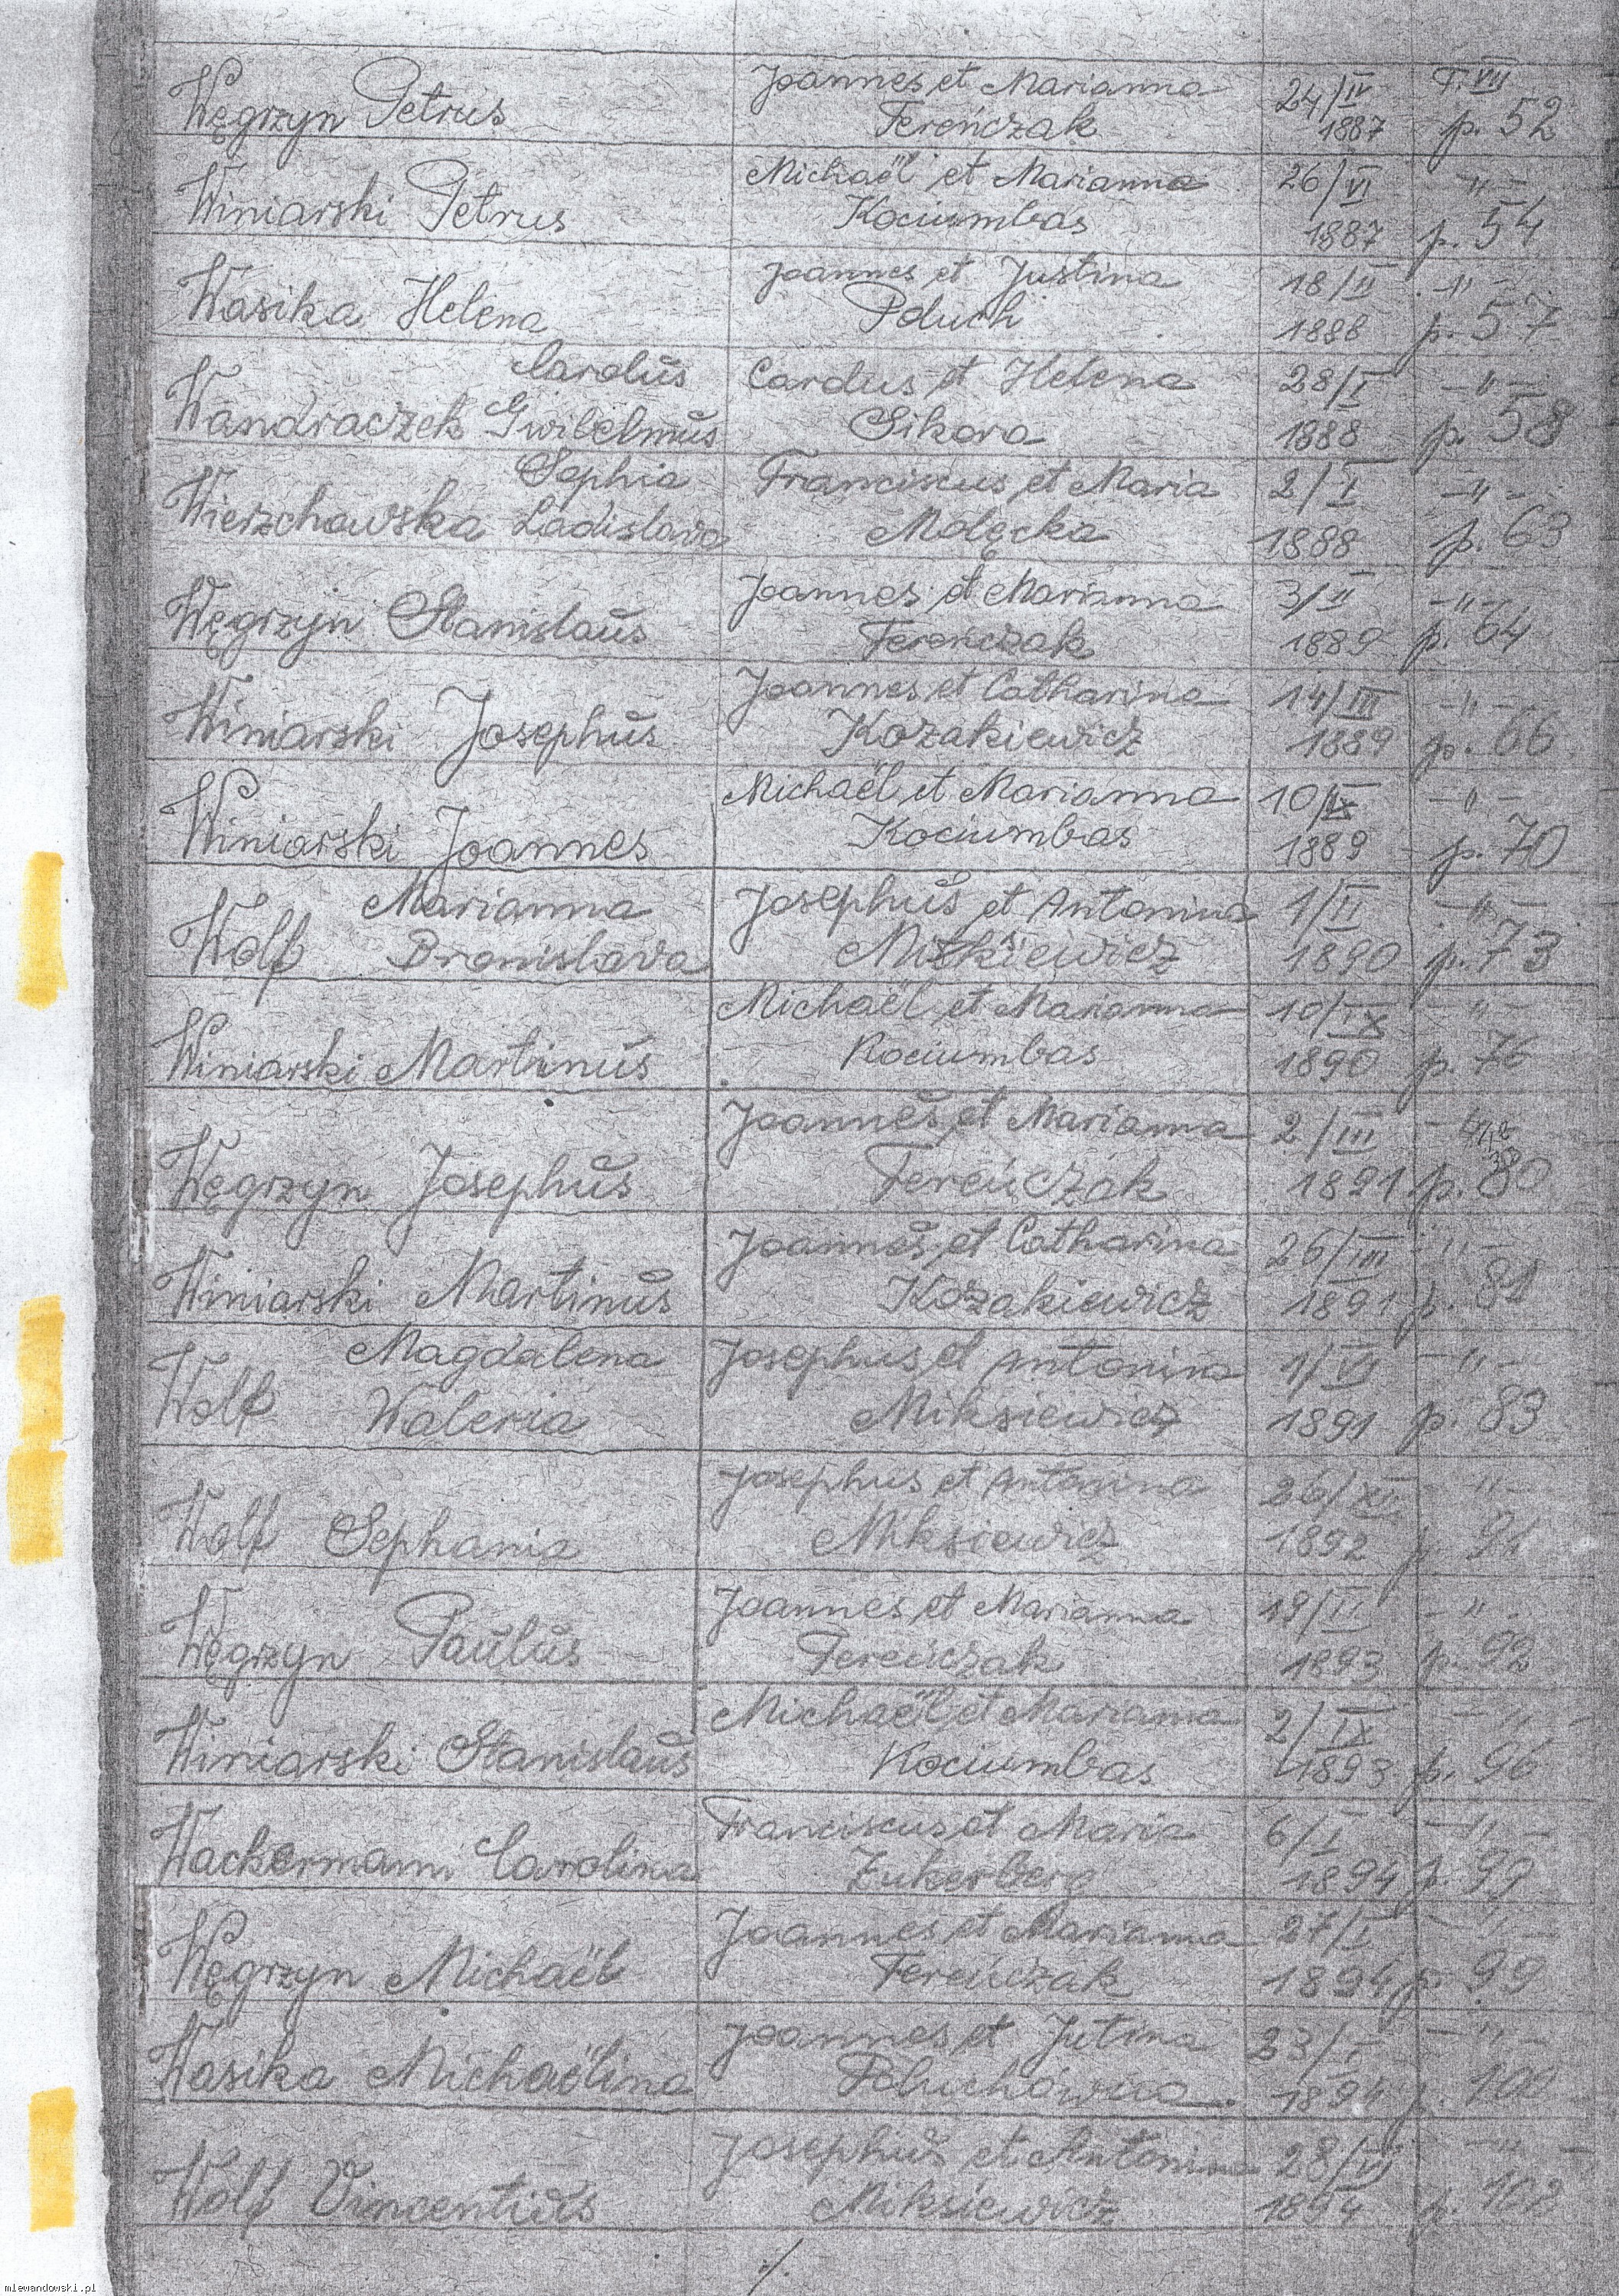 Joannes et Marianna 24/IV T. VIII
Węgrzyn Petrus Fereńczak 1887 p. 52
Michaël et Marianna 26/VI -"-
Winiarski Petrus Kociumbas 1887 p. 54
Joannes et Justina 18/II -"-
Wasika Helena Poluch 1888 p. 57
Carolus Carolus et Helena 28/I -"-
Wandraczek Gwilelmus Sikora 1888 p. 58
Sophia Franciscus et Maria 2/I -"-
Wierzchowska Ladislava Molęcka 1888 p. 63
Joannes et Marianna 3/II -"-
Węgrzyn Stanislaus Fereńczak 1889 p. 64
Joannes et Catharina 14/III -"-
Winiarski Josephus Kozakiewicz 1889 p. 66
Michaël et Marianna 10/IX -"-
Winiarski Joannes Kociumbas 1889 p. 70
Marianna Josephus et Antonina 1/II -"-
Wolf Bronislava Mikśiewicz 1890 p. 73
Michaël et Marianna 10/IX -"-
Winiarski Martinus Kociumbas 1890 p. 76
Joannes et Marianna 2/III
Węgrzyn Josephus Fereńczak 1891 p. 80
Joannes et Catharina 26/III -"-
Winiarski Martinus Kozakiewicz 1891 p. 81
Magdalena Josephus et Antonina 1/VI -"-
Wolf Waleria Miksiewicz 1891 p. 83
Josephus et Antonina 26/XII -"-
Wolf Sephania Miksiewicz 1892 p. 91
Joannes et Marianna 19/II -"-
Węgrzyn Paulus Fereńczak 1893 p. 92
Michaël et Marianna 2/IX -"-
Winiarski Stanislaus Kociumbas 1893 p. 96
Franciscus et Maria 6/I -"-
Wackermann Carolina Zukerberg 1894 p. 99
Joannes et Marianna 27/I -"-
Węgrzyn Michaël Fereńczak 1894 p. 99
Joannes et Jutina 23/I -"-
Wasika Michaëlina Poluchówna 1894 p. 100
Josephus et Antonina 28/VI -"-
Wolf Vincentius Miksiewicz 1894 p. 102
./.
mlewandowski.pl